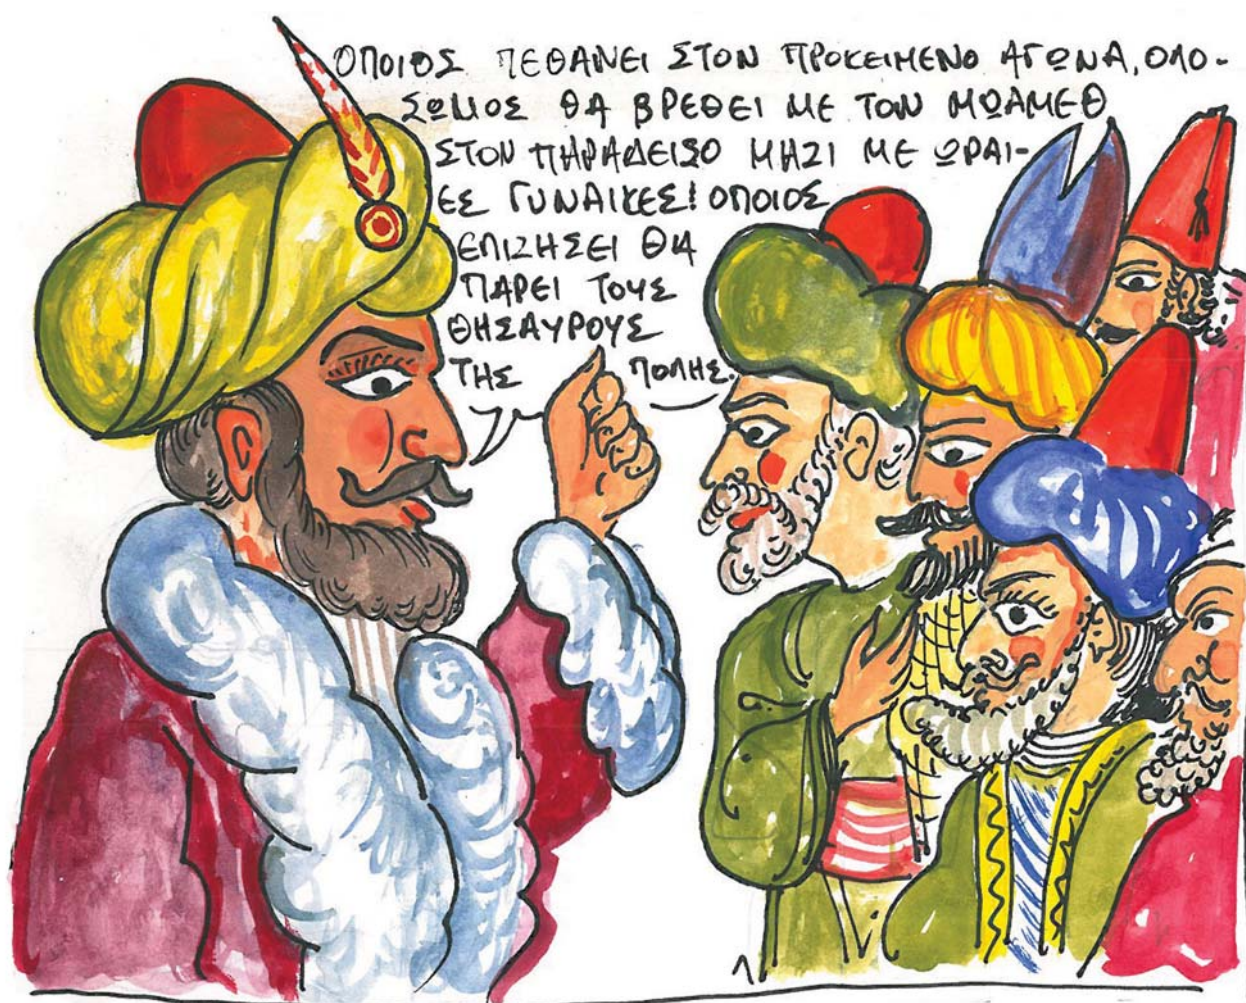 ΟΠΟΙΟΣ ΠΕΘΑΝΕΙ ΣΤΟΝ ΠΡΟΚΕΙΜΕΝΟ ΑΓΩΝΑ, ΟΛΟ-
ΣΩΜΟΣ ΘΑ ΒΡΕΘΕΙ ΜΕ ΤΟΝ ΜΩΑΜΕΘ
ΣΤΟΝ ΠΑΡΑΔΕΙΣΟ ΜΑΖΙ ΜΕ ΩΡΑΙ-
ΕΣ ΓΥΝΑΙΚΕΣ! ΟΠΟΙΟΣ
ΕΠΙΖΗΣΕΙ ΘΑ
ΠΑΡΕΙ ΤΟΥΣ
ΘΗΣΑΥΡΟΥΣ
ΤΗΣ ΠΟΛΗΣ.